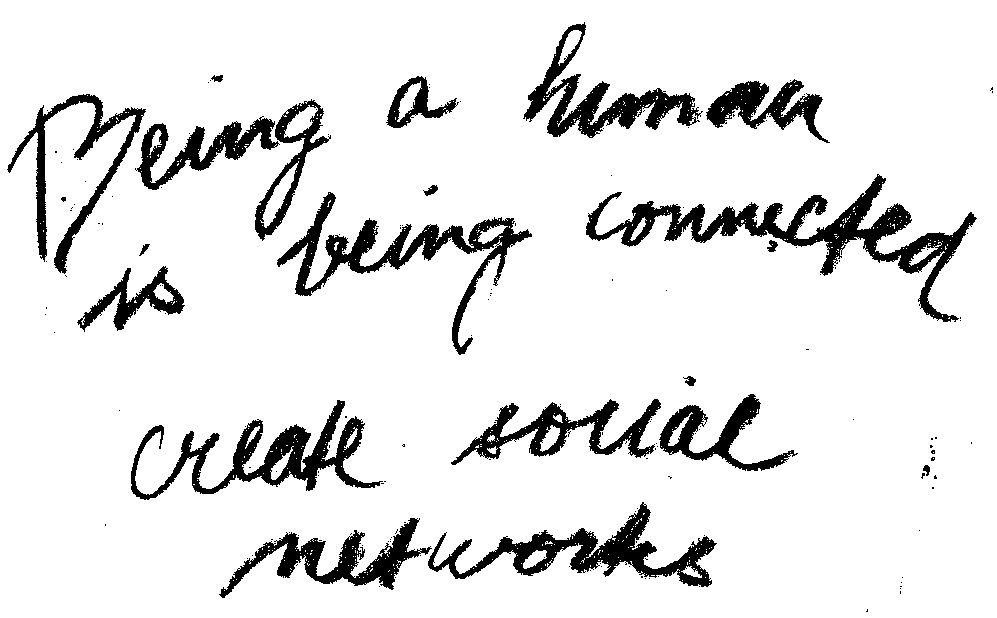 Being a human
is being connected
create social
networks